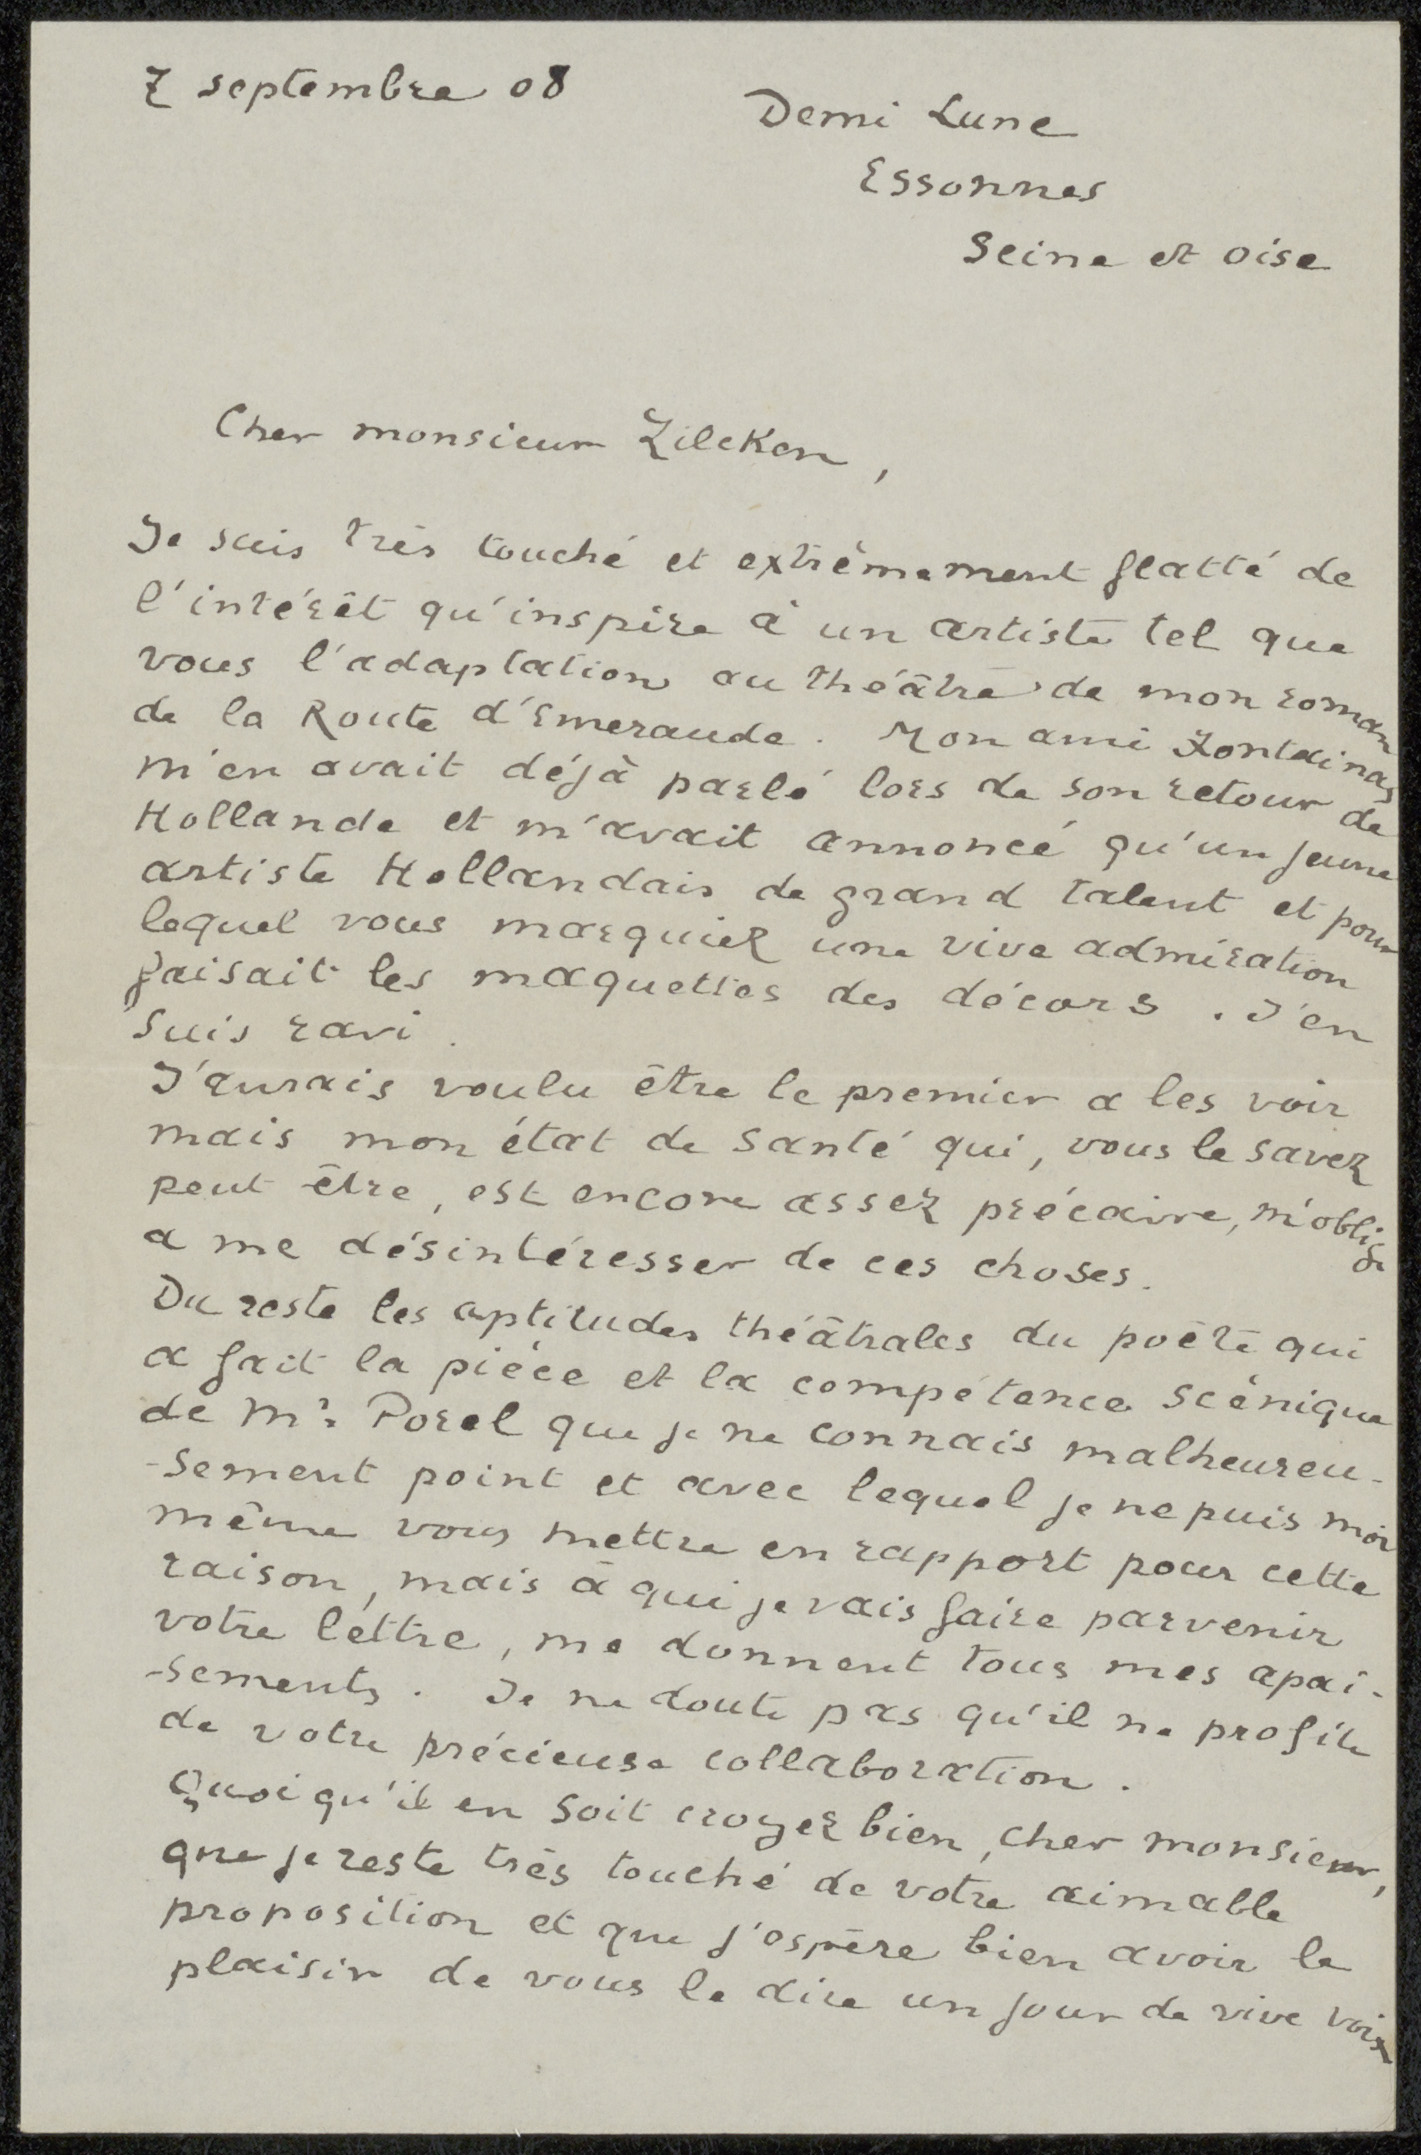 7 septembre 08
Demi Lune
Essonnes
Seine et oise
Cher monsieur Zilcken,
Je suis très touché et extrêmement flatté de
l'intérêt qu'inspire à un artiste tel que
vous l'adaptation au théâtre de mon roman
de la Route d'Emeraude. Mon ami Fontainas
m'en avait déjà parlé lors de son retour de
Hollande et m'avait annoncé qu'un jeune
artiste Hollandais de grand talent et pour
lequel vous marquiez une vive admiration
faisait les maquettes des décors. J'en
suis ravi.
J'aurais voulu être le premier a les voir
mais mon état de santé qui, vous le savez
peut être, est encore assez précaire, m'oblige
a me désintéresser de ces choses.
Du reste les aptitudes théâtrales du poète qui
a fait la pièce et la compétence scènique
de Mr Porel que je ne connais malheureu-
-sement point et avec lequel je ne puis moi
même vous mettre en rapport pour cette
raison, mais à qui je vais faire parvenir
votre lettre, me donnent tous mes apai-
-sements. Je ne doute pas qu'il ne profite
de votre précieuse collaboration.
Quoi qu'il en soit croyez bien, cher monsieur,
que je reste très touché de votre aimable
proposition et que j'espère bien avoir le
plaisir de vous le dire un jour de vive voix